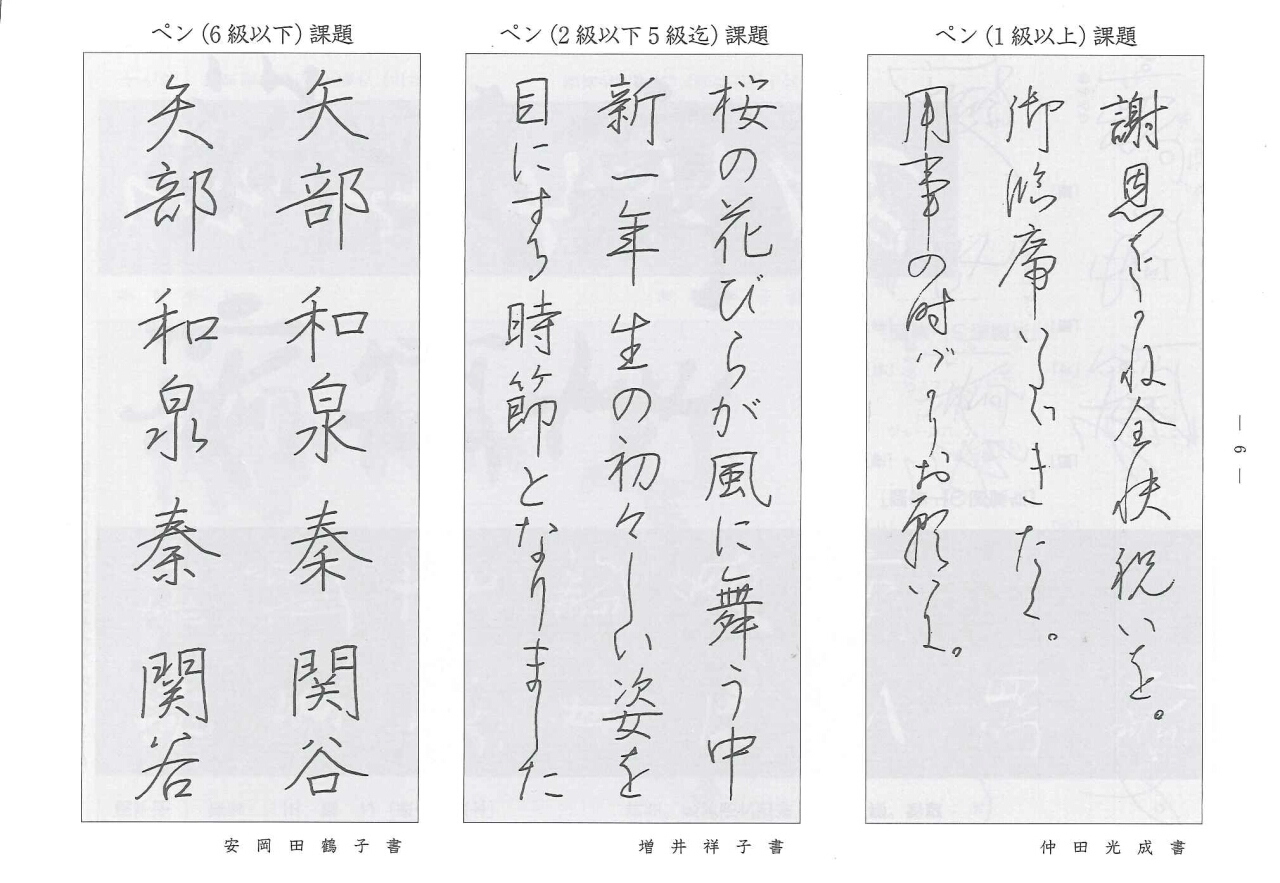 ペン(1級以上)課題
謝恩をかね全快祝いを。
御臨席いただきたく。
用事の時ばかりお願い
仲田光成書
ペン(2級以下5級迄)課題
桜の花びらが風に舞う中
新一年生の初々しい姿を
目にする時節となりました
増井祥子書
ペン(6級以下)課題
矢部 和泉 秦 関谷
矢部 和泉 秦 関谷
安岡田鶴子書
— 6 —